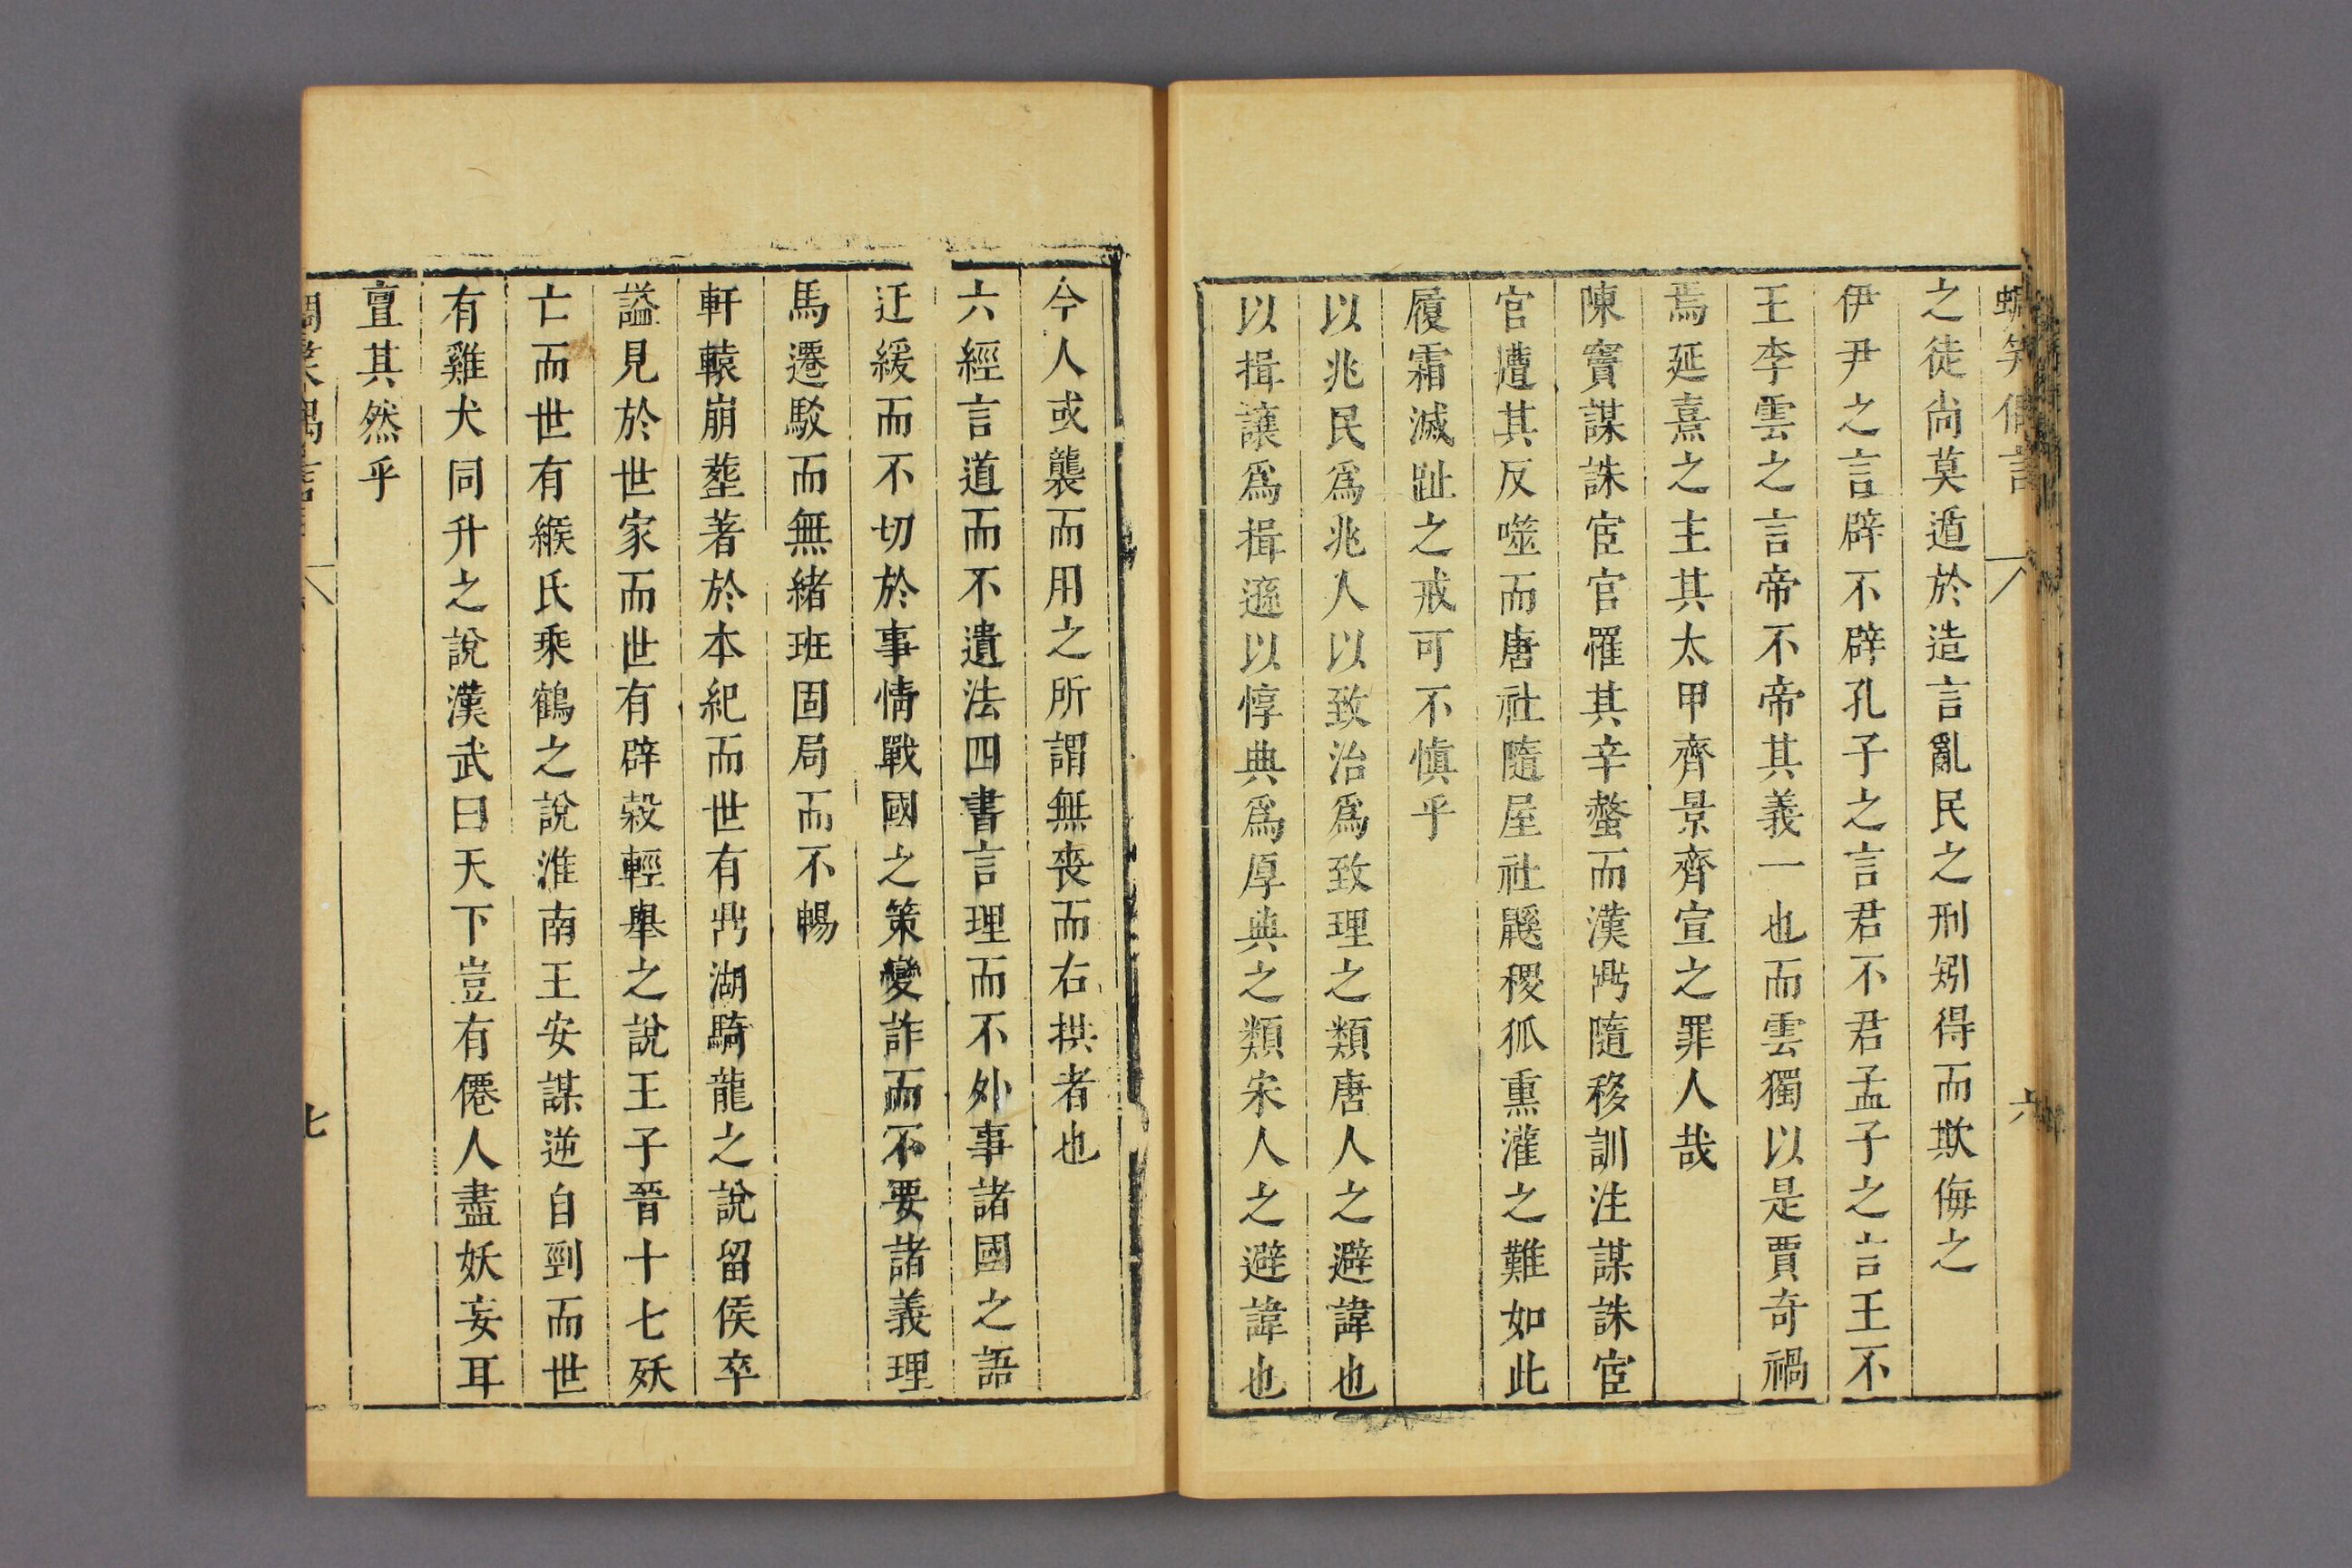 蜩笑偶言 六
之徒尚莫遁於造言亂民之刑矧得而欺侮之
伊尹之言辟不辟孔子之言君不君孟子之言王不
王李雲之言帝不帝其義一也而雲獨以是賈奇禍
焉延熹之主其太甲齊景齊宣之罪人哉
陳竇謀誅宦官罹其辛螫而漢鼎隨移訓注謀誅宦
官遭其反噬而唐社隨屋社鼷稷狐熏灌之難如此
履霜滅趾之戒可不慎乎
以兆民爲兆人以致治爲致理之類唐人之避諱也
以揖讓爲揖遜以惇典爲厚典之類宋人之避諱也
今人或襲而用之所謂無喪而右拱者也
六經言道而不遺法四書言理而不外事諸國之語
迂緩而不切於事情戰國之策變詐而不要諸義理
馬遷駁而無緒班固局而不暢
軒轅崩葬著於本紀而世有鼎湖騎龍之說留侯卒
謚見於世家而世有辟穀輕舉之說王子晉十七殀
亡而世有緱氏乘鶴之說淮南王安謀逆自剄而世
有雞犬同升之說漢武曰天下豈有僊人盡妖妄耳
亶其然乎
蜩笑偶言 七